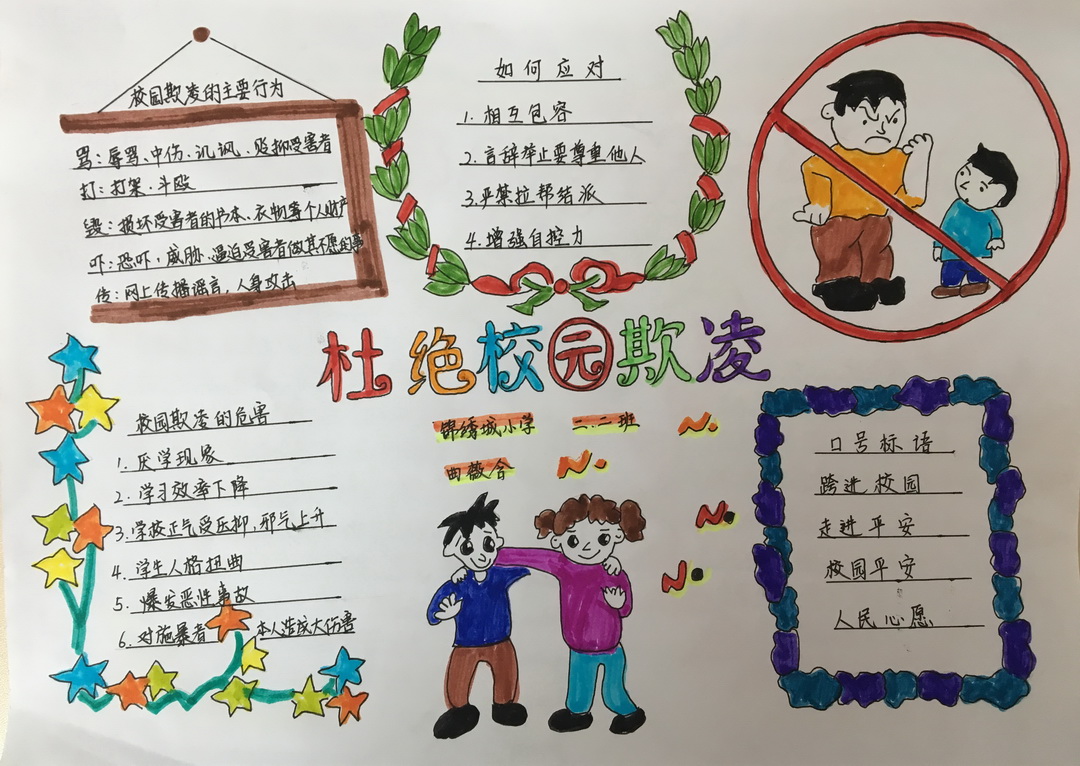 校园欺凌的主要行为
骂：辱骂、中伤、讥讽、贬抑受害者
打：打架、斗殴
毁：损坏受害者的书本、衣物等个人财产
吓：恐吓，威胁、逼迫受害者做其不愿的事
传：网上传播谣言，人身攻击
如何应对
1. 相互包容
2. 言辞举止要尊重他人
3. 严禁拉帮结派
4. 增强自控力
杜绝校园欺凌
锦绣城小学 二.二班
曲薇合
校园欺凌的危害
1. 厌学现象
2. 学习效率下降
3. 学校正气受压抑，邪气上升
4. 学生人格扭曲
5. 爆发恶性事故
6. 对施暴者 本人造成大伤害
口号标语
跨进校园
走进平安
校园平安
人民心愿